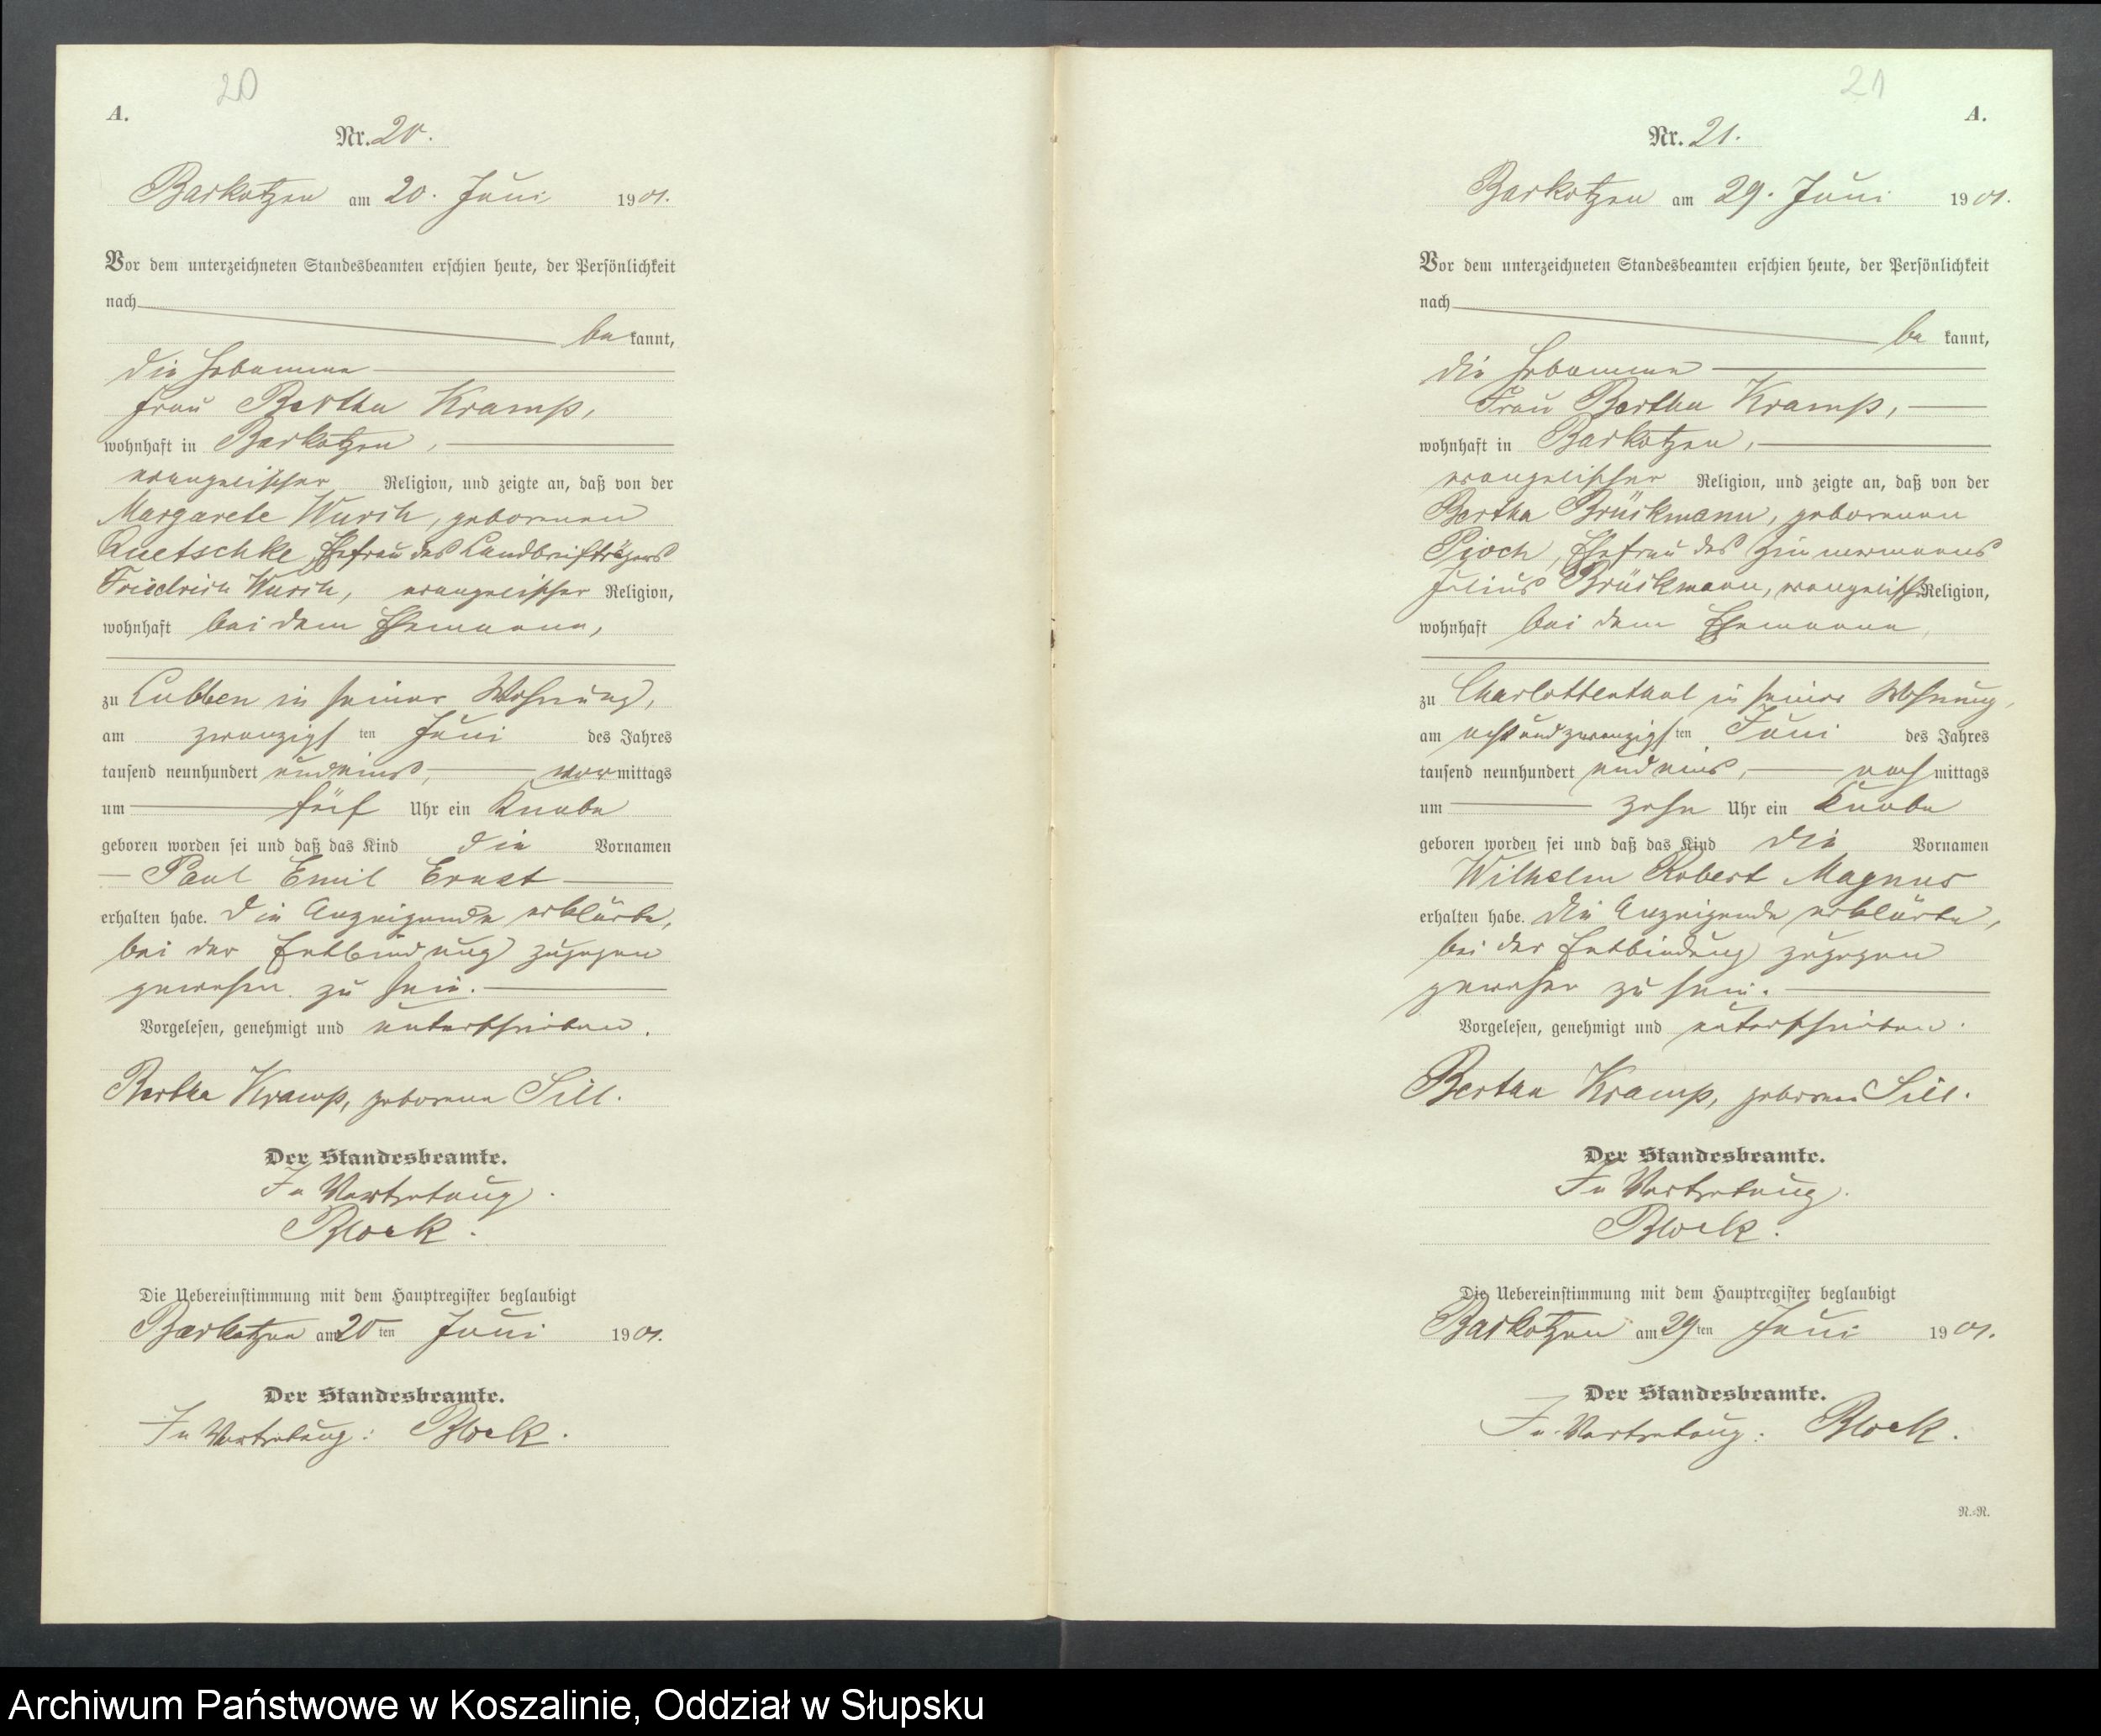 20
A.
Nr. 20.
Barkotzen am 20. Juni 1901.
Vor dem unterzeichneten Standesbeamten erschien heute, der Persönlichkeit
nach
be kannt,
die Hebamme
Frau Bertha Kramp,
wohnhaft in Barkotzen,
evangelischer Religion, und zeigte an, daß von der
Margarete Wursch, geborenen
Quetschke, Ehefrau des Landbriefträgers
Friedrich Wursch, evangelischer Religion,
wohnhaft bei dem Ehemanne,
zu Lubben in seiner Wohnung,
am zwanzigsten Juni des Jahres
tausend neunhundert und eins, vormittags
um fünf Uhr ein Knabe
geboren worden sei und daß das Kind die Vornamen
Paul Emil Ernst
erhalten habe. Die Anzeigende erklärte,
bei der Entbindung zugegen
gewesen zu sein.
Vorgelesen, genehmigt und unterschrieben.
Bertha Kramp, geborene Sill.
Der Standesbeamte.
In Vertretung.
Block.
Die Uebereinstimmung mit dem Hauptregister beglaubigt
Barkotzen am 20ten Juni 1901.
Der Standesbeamte.
In Vertretung: Block.
21
A.
Nr. 21.
Barkotzen am 29. Juni 1901.
Vor dem unterzeichneten Standesbeamten erschien heute, der Persönlichkeit
nach
be kannt,
die Hebamme
Frau Bertha Kramp,
wohnhaft in Barkotzen,
evangelischer Religion, und zeigte an, daß von der
Bertha Brückmann, geborenen
Pioch, Ehefrau des Zimmermanns
Julius Brückmann, evangelischer Religion,
wohnhaft bei dem Ehemanne,
zu Charlottenthal in seiner Wohnung,
am achtundzwanzigsten Juni des Jahres
tausend neunhundert und eins, nachmittags
um zehn Uhr ein Knabe
geboren worden sei und daß das Kind die Vornamen
Wilhelm Robert Magnus
erhalten habe. Die Anzeigende erklärte,
bei der Entbindung zugegen
gewesen zu sein.
Vorgelesen, genehmigt und unterschrieben.
Bertha Kramp, geborene Sill.
Der Standesbeamte.
In Vertretung.
Block.
Die Uebereinstimmung mit dem Hauptregister beglaubigt
Barkotzen am 29ten Juni 1901.
Der Standesbeamte.
In Vertretung: Block.
N.-R.
Archiwum Państwowe w Koszalinie, Oddział w Słupsku